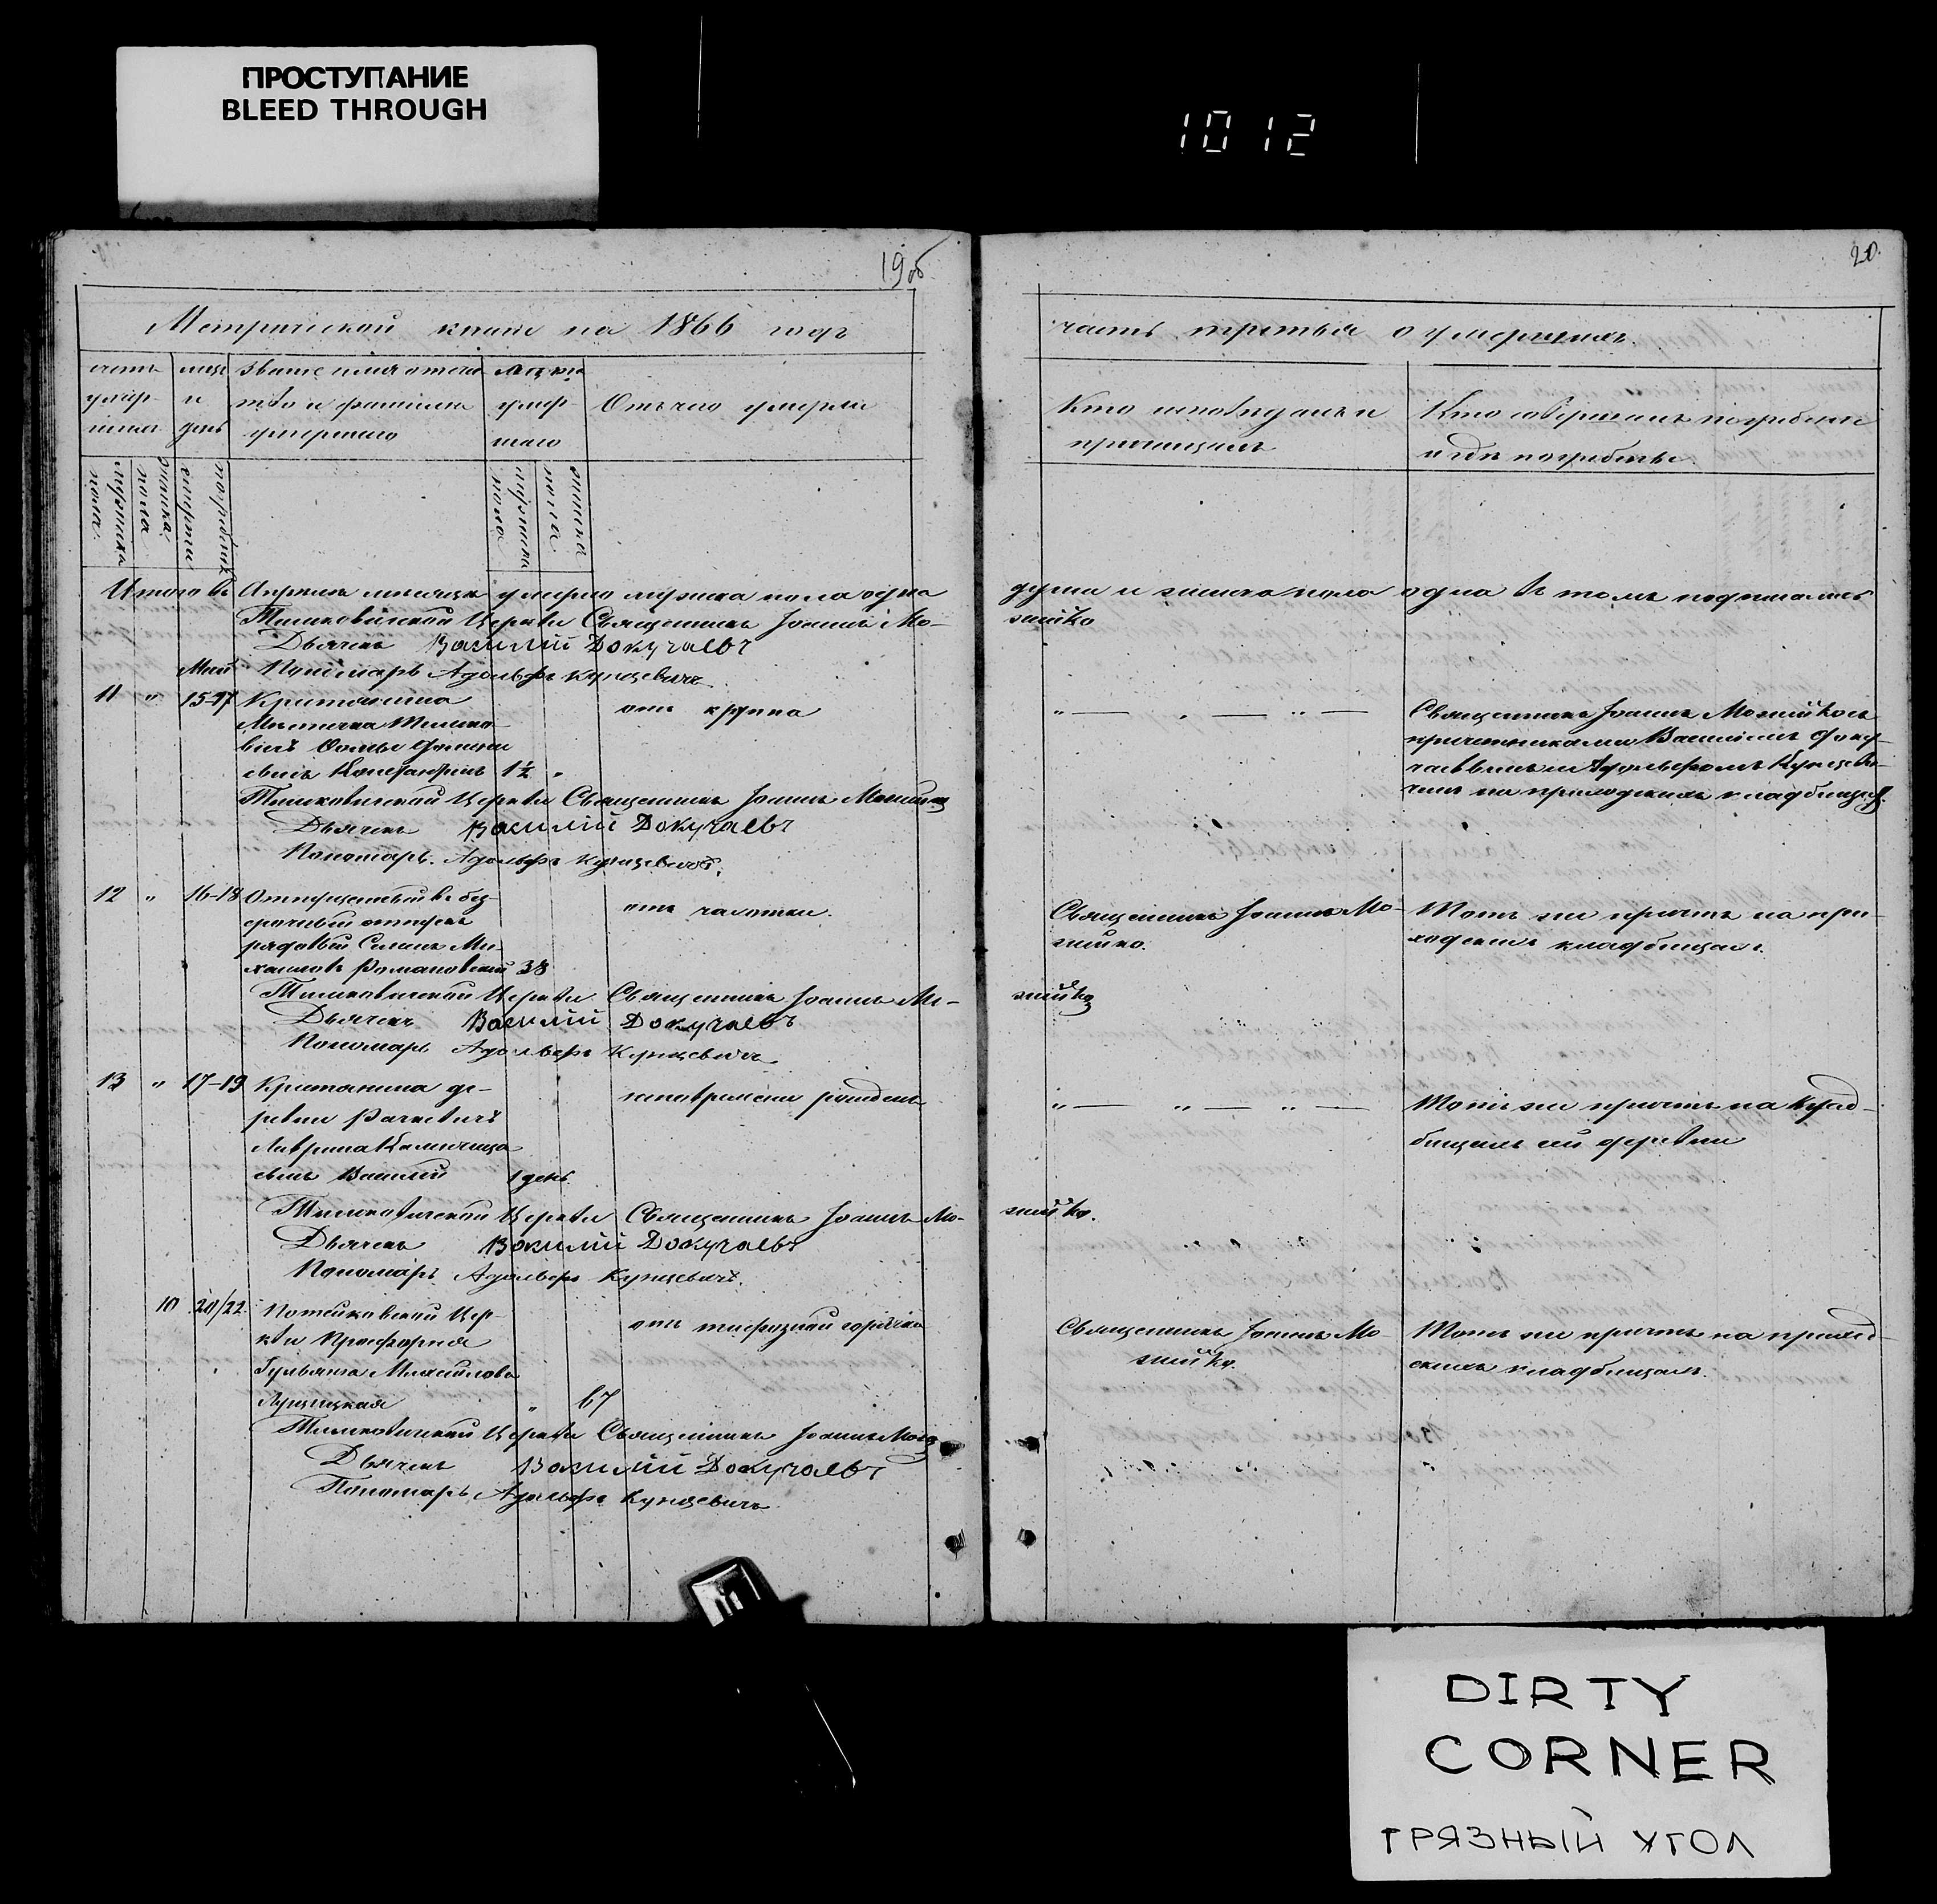 ПРОСТУПАНИЕ
BLEED THROUGH
1012
19об
20.
Метрической книги на 1866 годъ
часть третья о умершихъ.
счетъ умер-
шихъ
мѣсяцъ и день
Званіе имя отече-
тво и фамилия
умершаго
лѣта
умер-
шаго
Отъ чего умерли
Кто исповѣдывалъ и
причащалъ
Кто совершалъ погребеніе
и гдѣ погребены.
мужска пола
женска пола
смерти
погребенія
мужска пола
женска пола
Итого въ Апрѣлѣ мѣсяцѣ умерло мужска пола одна
душа и женска пола одна въ томъ подписались
Тимковичской Церкви Священникъ Іоаннъ Мо-
зейко
Дьячекъ Василій Докучаевъ
Май Пономарь Адольфъ Кунцевичъ
11 " 15-17 Крестьянина
мѣстечка Тимко-
вичъ
сынъ 1½ "
отъ крупа
Священникъ Іоаннъ Мозейко съ
причетниками Василіемъ Доку-
чаевымъ и Адольфомъ Кунцеви-
чемъ на приходскихъ кладбищахъ.
Тимковичской Церкви Священникъ Іоаннъ Мозейко
Дьячекъ Василій Докучаевъ
Пономарь Адольфъ Кунцевичъ.
12 " 16-18 Отпущенный въ без-
срочный отпускъ
рядовый Семенъ Ми-
хаиловъ Романовский 38
отъ чахотки.
Священникъ Іоаннъ Мо-
зейко.
Тотъ же причтъ на при-
ходскихъ кладбищахъ.
Тимковичской Церкви Священникъ Іоаннъ Мо-
зейко
Дьячекъ Василій Докучаевъ
Пономарь Адольфъ Кунцевичъ
13 " 17-19 Крестьянина де-
ревни Рачкевичъ
Лаврина
сынъ Василій 1 день
рожденъ
Тотъ же причтъ на клад-
бищахъ сей деревни
Тимковичской Церкви Священникъ Іоаннъ Мо-
зейко.
Дьячекъ Василій Докучаевъ
Пономарь Адольфъ Кунцевичъ.
10 20/22. Потейковской Цер-
кви Просфорня
Гульяна Михаилова
" 67
отъ тифозной горячки
Священникъ Іоаннъ Мо-
зейко.
Тотъ же причтъ на приход-
скихъ кладбищахъ.
Тимковичской Церкви Священникъ Іоаннъ Мозейко
Дьячекъ Василій Докучаевъ
Пономарь Адольфъ Кунцевичъ
DIRTY
CORNER
ГРЯЗНЫЙ УГОЛ